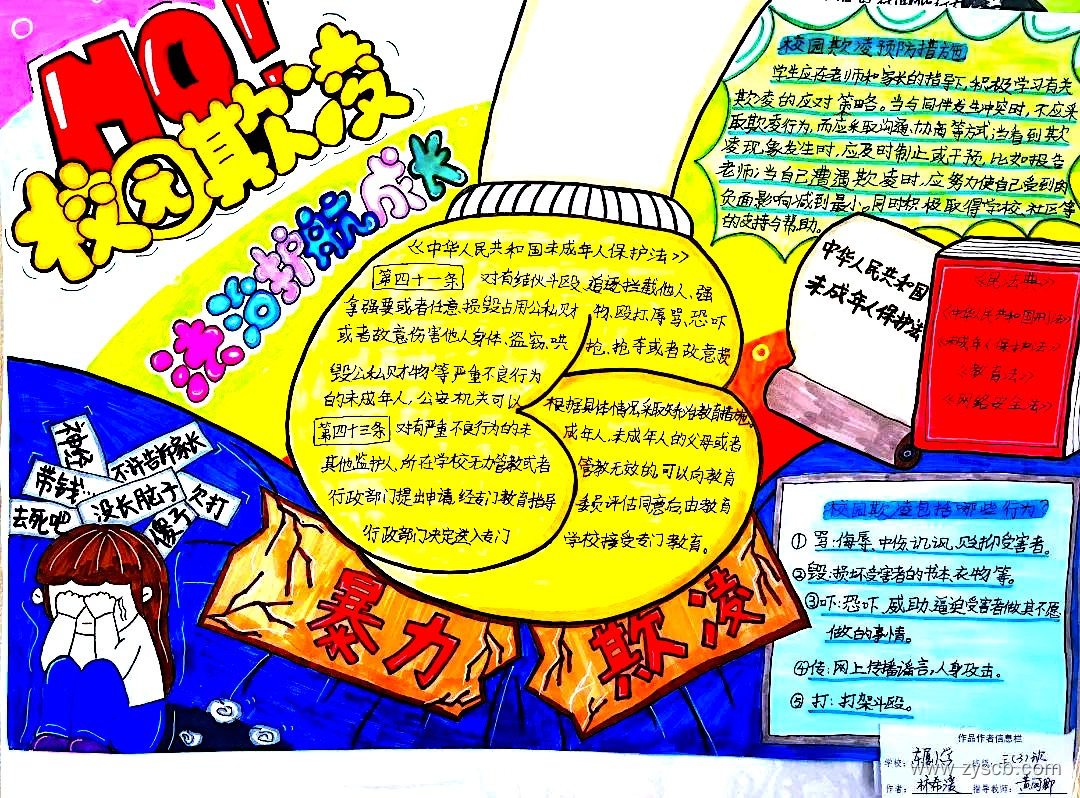 NO!
校园欺凌
法治护航成长
校园欺凌预防措施
学生应在老师和家长的指导下,积极学习有关
欺凌的应对策略。当与同伴发生冲突时,不应采
取欺凌行为,而应采取沟通、协商等方式;当看到欺
凌现象发生时,应及时制止或干预,比如报告
老师;当自己遭遇欺凌时,应努力使自己受到的
负面影响减到最小。同时积极取得学校、社区等
的支持与帮助。
《中华人民共和国未成年人保护法》
第四十一条 对有结伙斗殴、追逐、拦截他人、强
拿强要或者任意损毁占用公私财物、殴打、辱骂、恐吓
或者故意伤害他人身体、盗窃、哄抢、抢夺或者故意损
毁公私财物等严重不良行为
的未成年人,公安机关可以根据具体情况采取矫治教育措施。
第四十三条 对有严重不良行为的未成年人,未成年人的父母或者
其他监护人、所在学校无力管教或者管教无效的,可以向教育
行政部门提出申请,经专门教育指导委员评估同意后,由教育
行政部门决定送入专门学校接受专门教育。
中华人民共和国
未成年人保护法
《民法典》
《中华人民共和国刑法》
《未成年人保护法》
《教育法》
《网络安全法》
神经
不许告诉家长
带钱...
没长脑子
欠打
去死吧
傻子
暴力
欺凌
校园欺凌包括哪些行为?
①骂:侮辱、中伤、讥讽、贬抑受害者。
②毁:损坏受害者的书本、衣物等。
③吓:恐吓、威助、逼迫受害者做其不愿
做的事情。
④传:网上传播谣言,人身攻击。
⑤打:打架斗殴。
作品作者信息栏
学校: 小学 班级: 三(3)班
作者: 林希 指导教师: 黄
www.zyscb.com